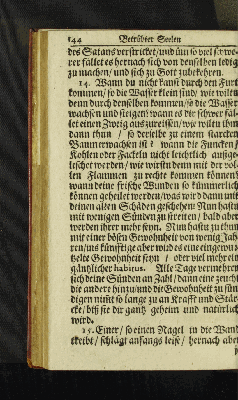 144 Betrübter Seelen
des Satans verstricket/ und üm so viel schwe-
rer fället es hernach sich von denselben ledig
zu machen/ und sich zu Gott zubekehren.
14. Wann du nicht kanst durch den Furt
kommen/ so die Wasser klein sind/ wie wiltu
denn durch denselben kommen/ so die Wasser
wachsen und steigen? wann es dir schwer fäl-
let einen Zweig auszureissen/ wie wiltu ihm
dann thun/ so derselbe zu einem starcken
Baum erwachsen ist? wann die Funcken/
Kohlen oder Fackeln nicht leichtlich ausge-
leschet werden/ wie wirstu denn mit der vol-
len Flammen zu rechte kommen können?
wann deine frische Wunden so kümmerlich
können geheilet werden/ was wird dann mit
deinen alten Schäden geschehen? Nun hastu
mit wenigen Sünden zu streiten/ bald aber
werden ihrer mehr seyn. Nun hastu zu thun
mit einer bösen Gewohnheit von wenig Jah-
ren/ ins künftige aber wird es eine eingewur-
tzelte Gewohnheit seyn/ oder viel mehr ein
gäntzlicher habitus. Alle Tage vermehren
sich deine Sünden an Zahl/ dann eine zeucht
die andere hinzu/ und die Gewohnheit zu sün-
digen nimt so lange zu an Krafft und Stär-
cke/ biß sie dir gantz geheim und natürlich
wird.
15. Einer/ so einen Nagel in die Wand
treibt/ schlägt anfangs leise/ hernach aber